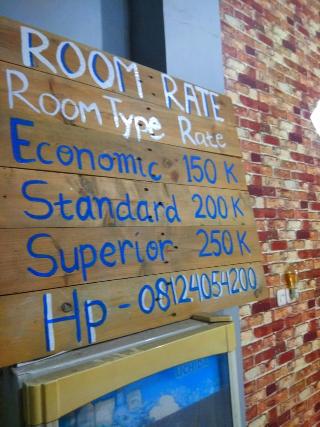 ROOM RATE
Room Type Rate
Economic 150 K
Standard 200 K
Superior 250 K
Hp - 08124054200